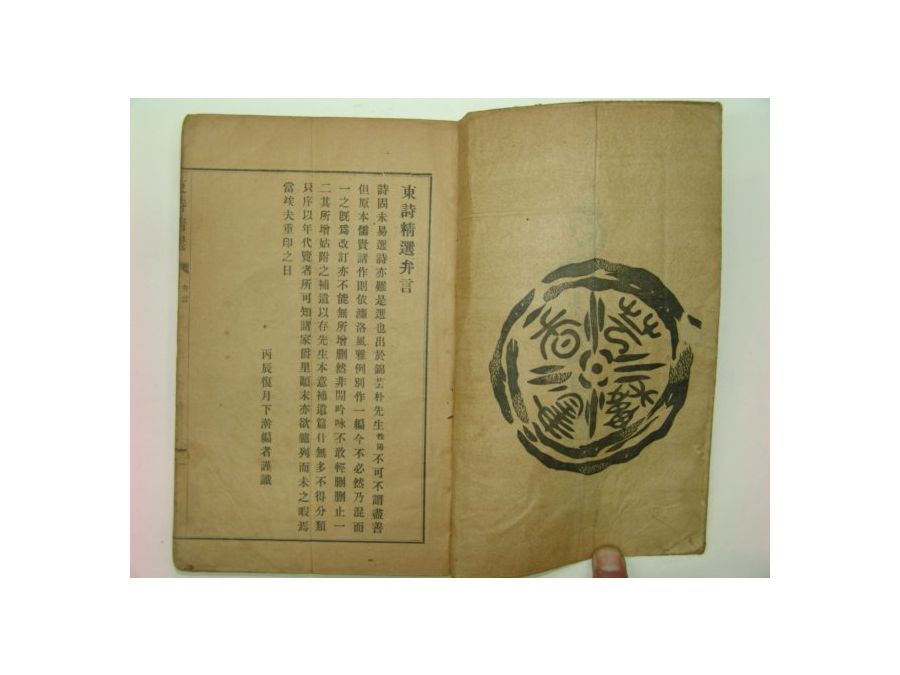 東詩精選弁言
詩固未易選詩亦難是選也出於錦芸朴先生 不可不謂盡善
但原本儒賢諸作則依濂洛風雅例別作一編今不必然乃混而
一之旣爲改訂亦不能無所增刪然非閒吟咏不敢輕刪刪止一
二其所增姑附之補遺以存先生本意補遺篇什無多不得分類
只序以年代覽者所可知諸家爵里顚末亦欲臚列而未之暇焉
當埃夫重印之日
丙辰復月下澣編者謹識
東詩精選
弁言